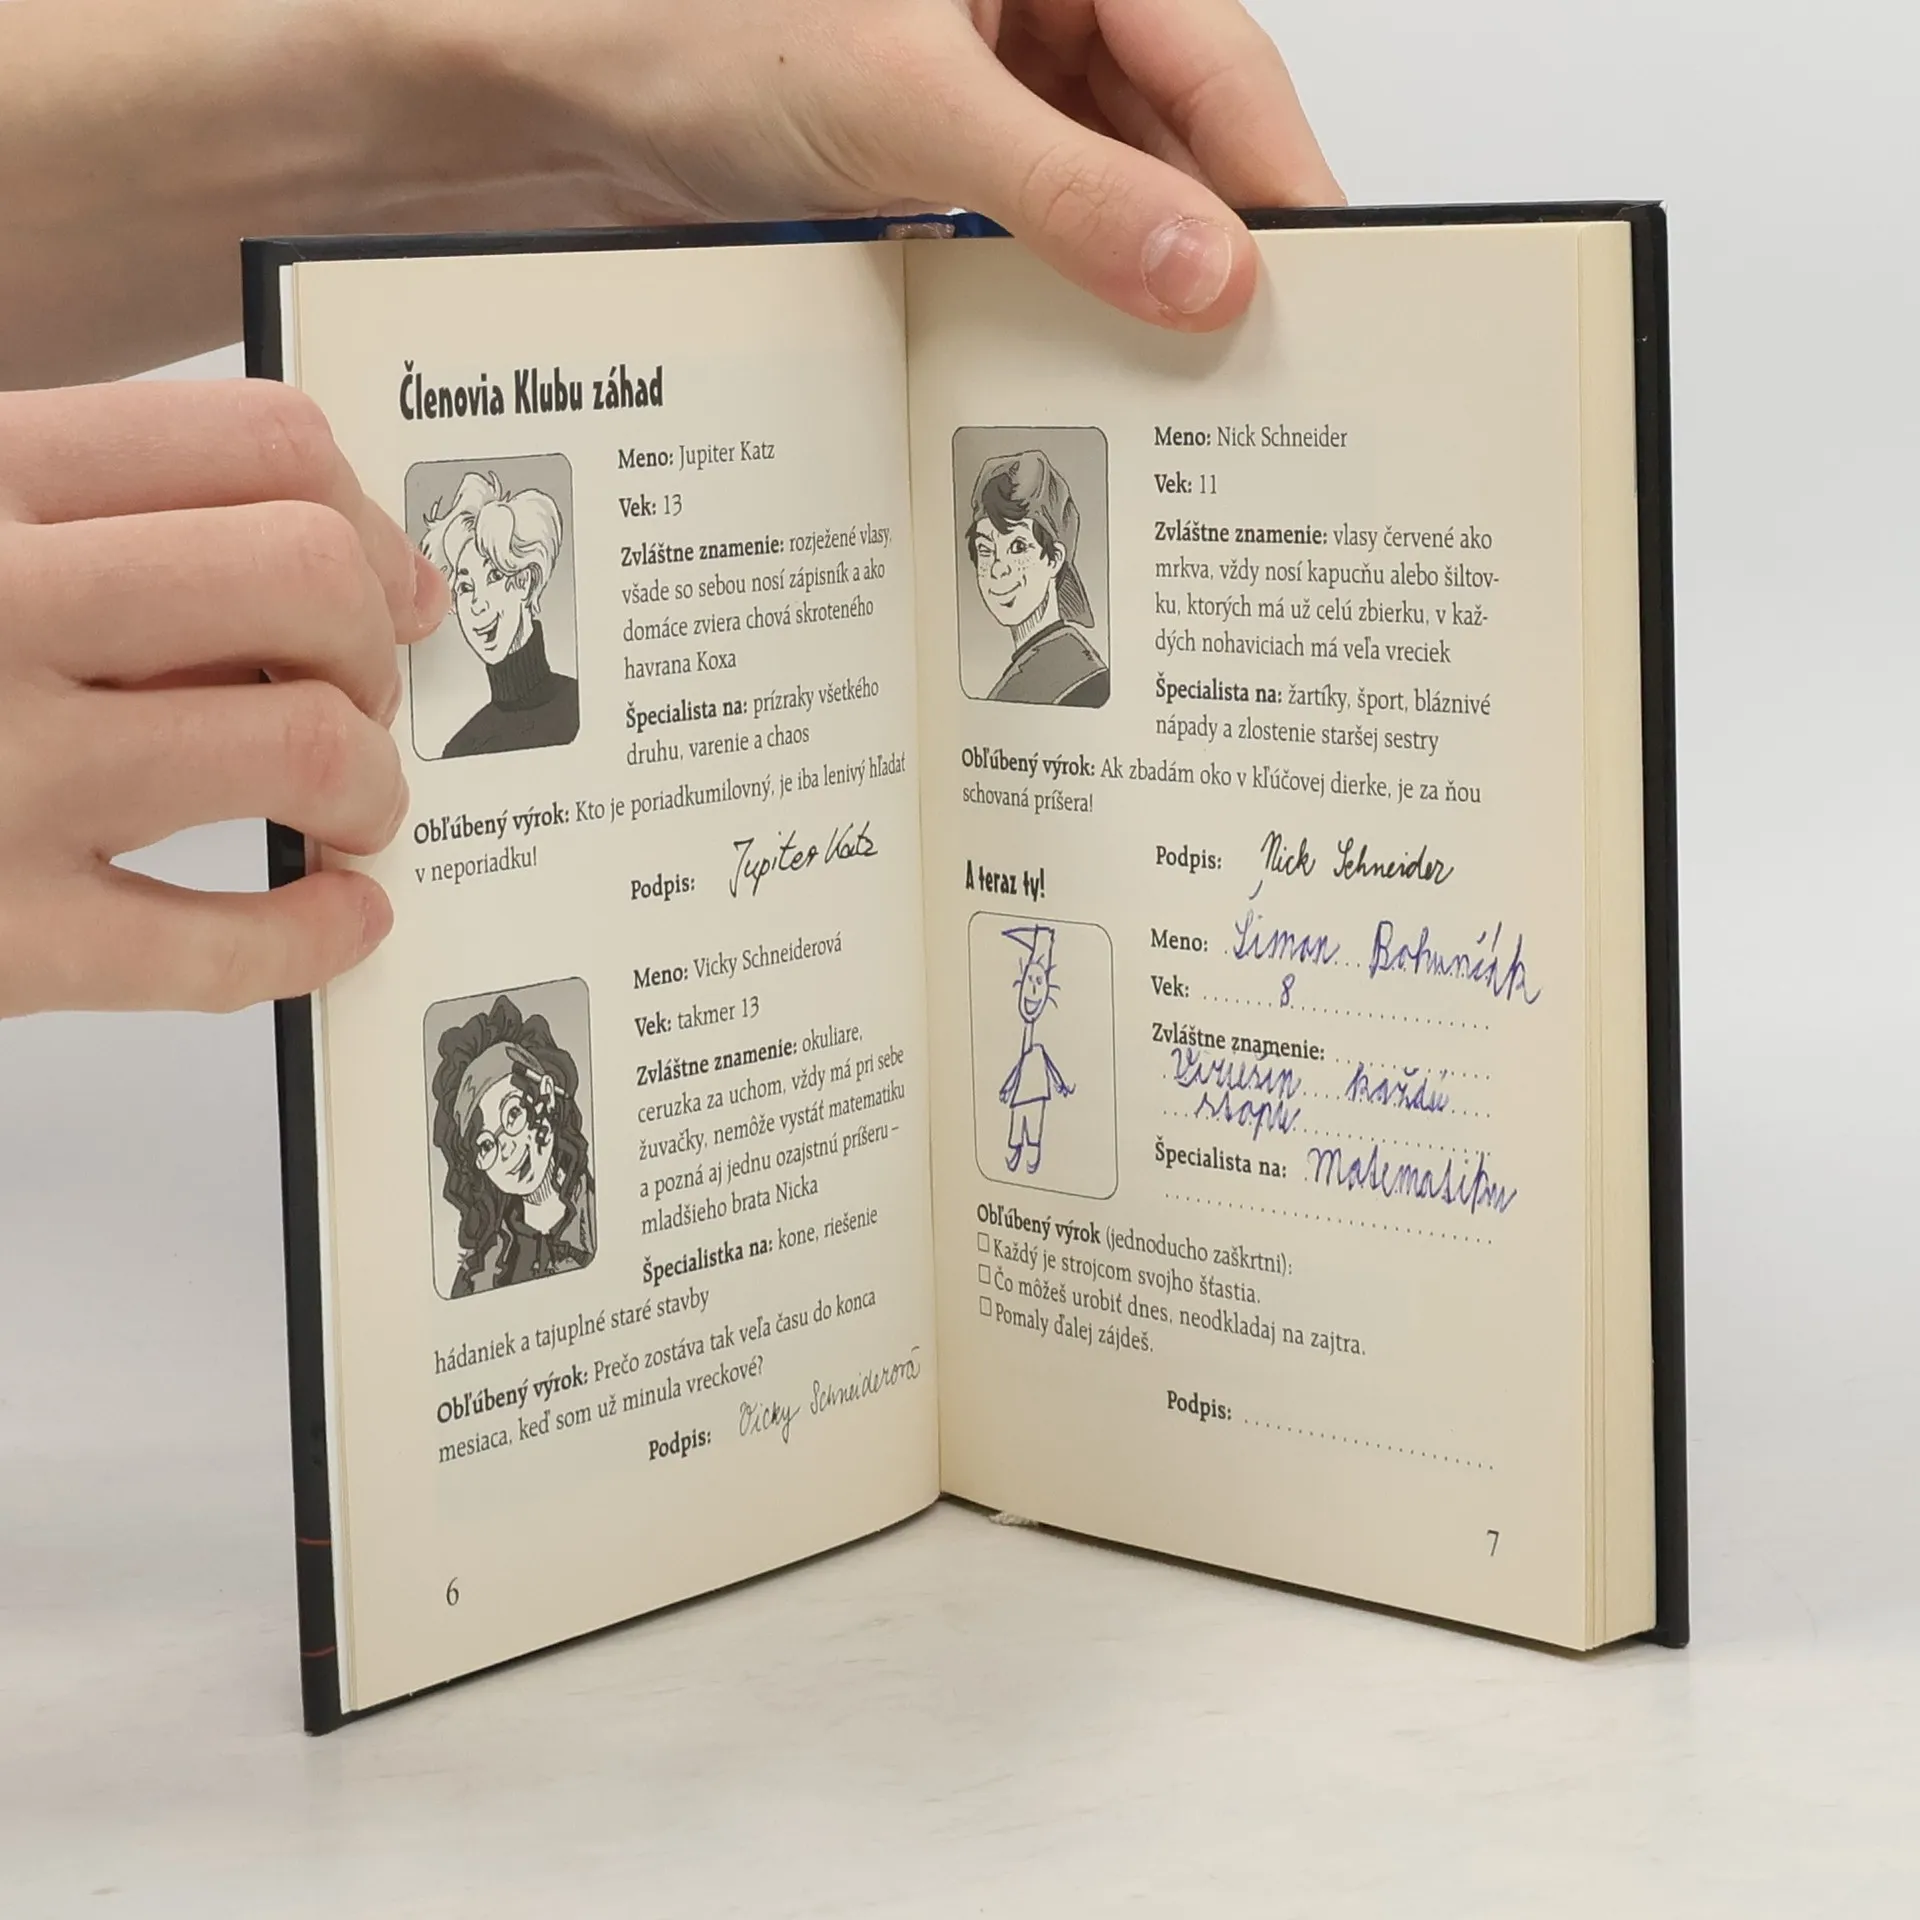 Členovia Klubu záhad
Meno: Jupiter Katz
Vek: 13
Zvláštne znamenie: rozježené vlasy,
všade so sebou nosí zápisník a ako
domáce zviera chová skroteného
havrana Koxa
Špecialista na: prízraky všetkého
druhu, varenie a chaos
Obľúbený výrok: Kto je poriadkumilovný, je iba lenivý hľadať
v neporiadku!
Podpis: Jupiter Katz
Meno: Vicky Schneiderová
Vek: takmer 13
Zvláštne znamenie: okuliare,
ceruzka za uchom, vždy má pri sebe
žuvačky, nemôže vystáť matematiku
a pozná aj jednu ozajstnú príšeru –
mladšieho brata Nicka
Špecialistka na: kone, riešenie
hádaniek a tajuplné staré stavby
Obľúbený výrok: Prečo zostáva tak veľa času do konca
mesiaca, keď som už minula vreckové?
Podpis: Vicky Schneiderová
6
Meno: Nick Schneider
Vek: 11
Zvláštne znamenie: vlasy červené ako
mrkva, vždy nosí kapucňu alebo šiltov-
ku, ktorých má už celú zbierku, v kaž-
dých nohaviciach má veľa vreciek
Špecialista na: žartíky, šport, bláznivé
nápady a zlostenie staršej sestry
Obľúbený výrok: Ak zbadám oko v kľúčovej dierke, je za ňou
schovaná príšera!
Podpis: Nick Schneider
A teraz ty!
Meno: Šimon Bohunčák
Vek: 8
Zvláštne znamenie:
každú
stopu
Špecialista na: Matematiku
Obľúbený výrok (jednoducho zaškrtni):
Každý je strojcom svojho šťastia.
Čo môžeš urobiť dnes, neodkladaj na zajtra.
Pomaly ďalej zájdeš.
Podpis:
7